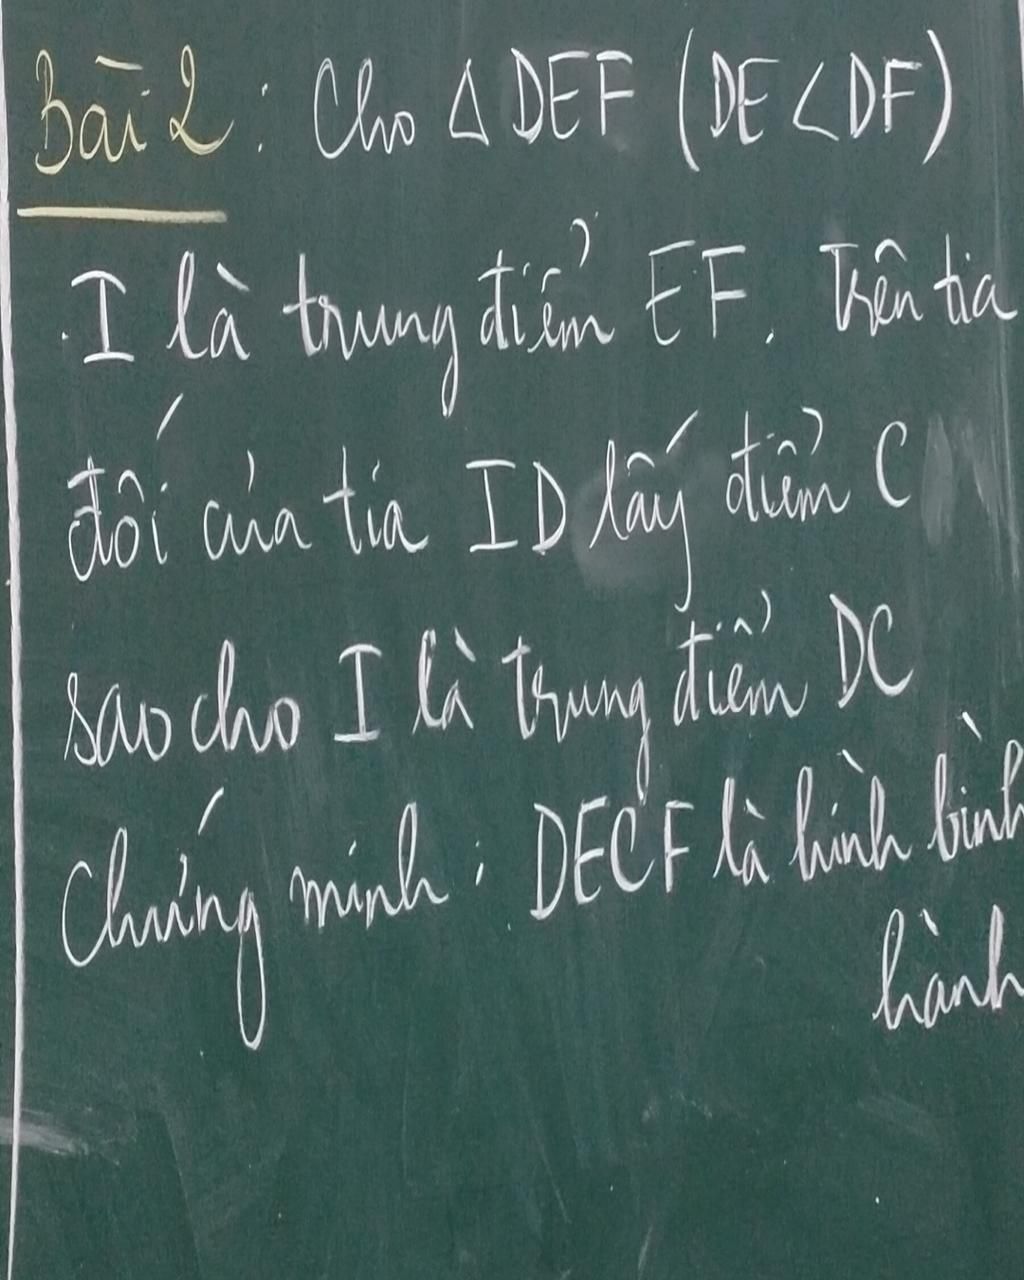 Bài 2: Cho Δ DEF (DE < DF)
. I là trung điểm EF. Trên tia
đối của tia ID lấy điểm C
sao cho I là trung điểm DC
Chứng minh: DECF là hình bình
hành